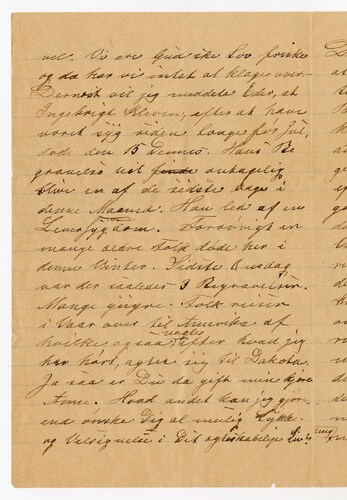 vel. Vi ere Gud ske Lov friske
og da har vi intet at klage over.
Dernæst vil jeg meddele Eder, at
Ingebrigt Kleven, efter at have
vært syg siden længe før Jul,
døde den 15 Dennes. Hans Be
gravelse vil finde antagelig
blive en af de sidste Dage i
denne Maaned. Han led af en
Leversygdom. Forøvrigt er
mange ældre Folk døde her i
denne Vinter. Sidste Onsdag
var der saaledes 3 Begravelser.
Mange yngre Folk reiser
i Vaar over til Amerika af
hvilke ogsaa nogle efter hvad jeg
har hørt, agter sig til Dakota.
Ja saa er Du da gift min kjære
Anne. Hvad andet kan jeg gjøre
end ønske Dig al mulig Lykke
og Velsignelse i Dit ægteskabelige Liv